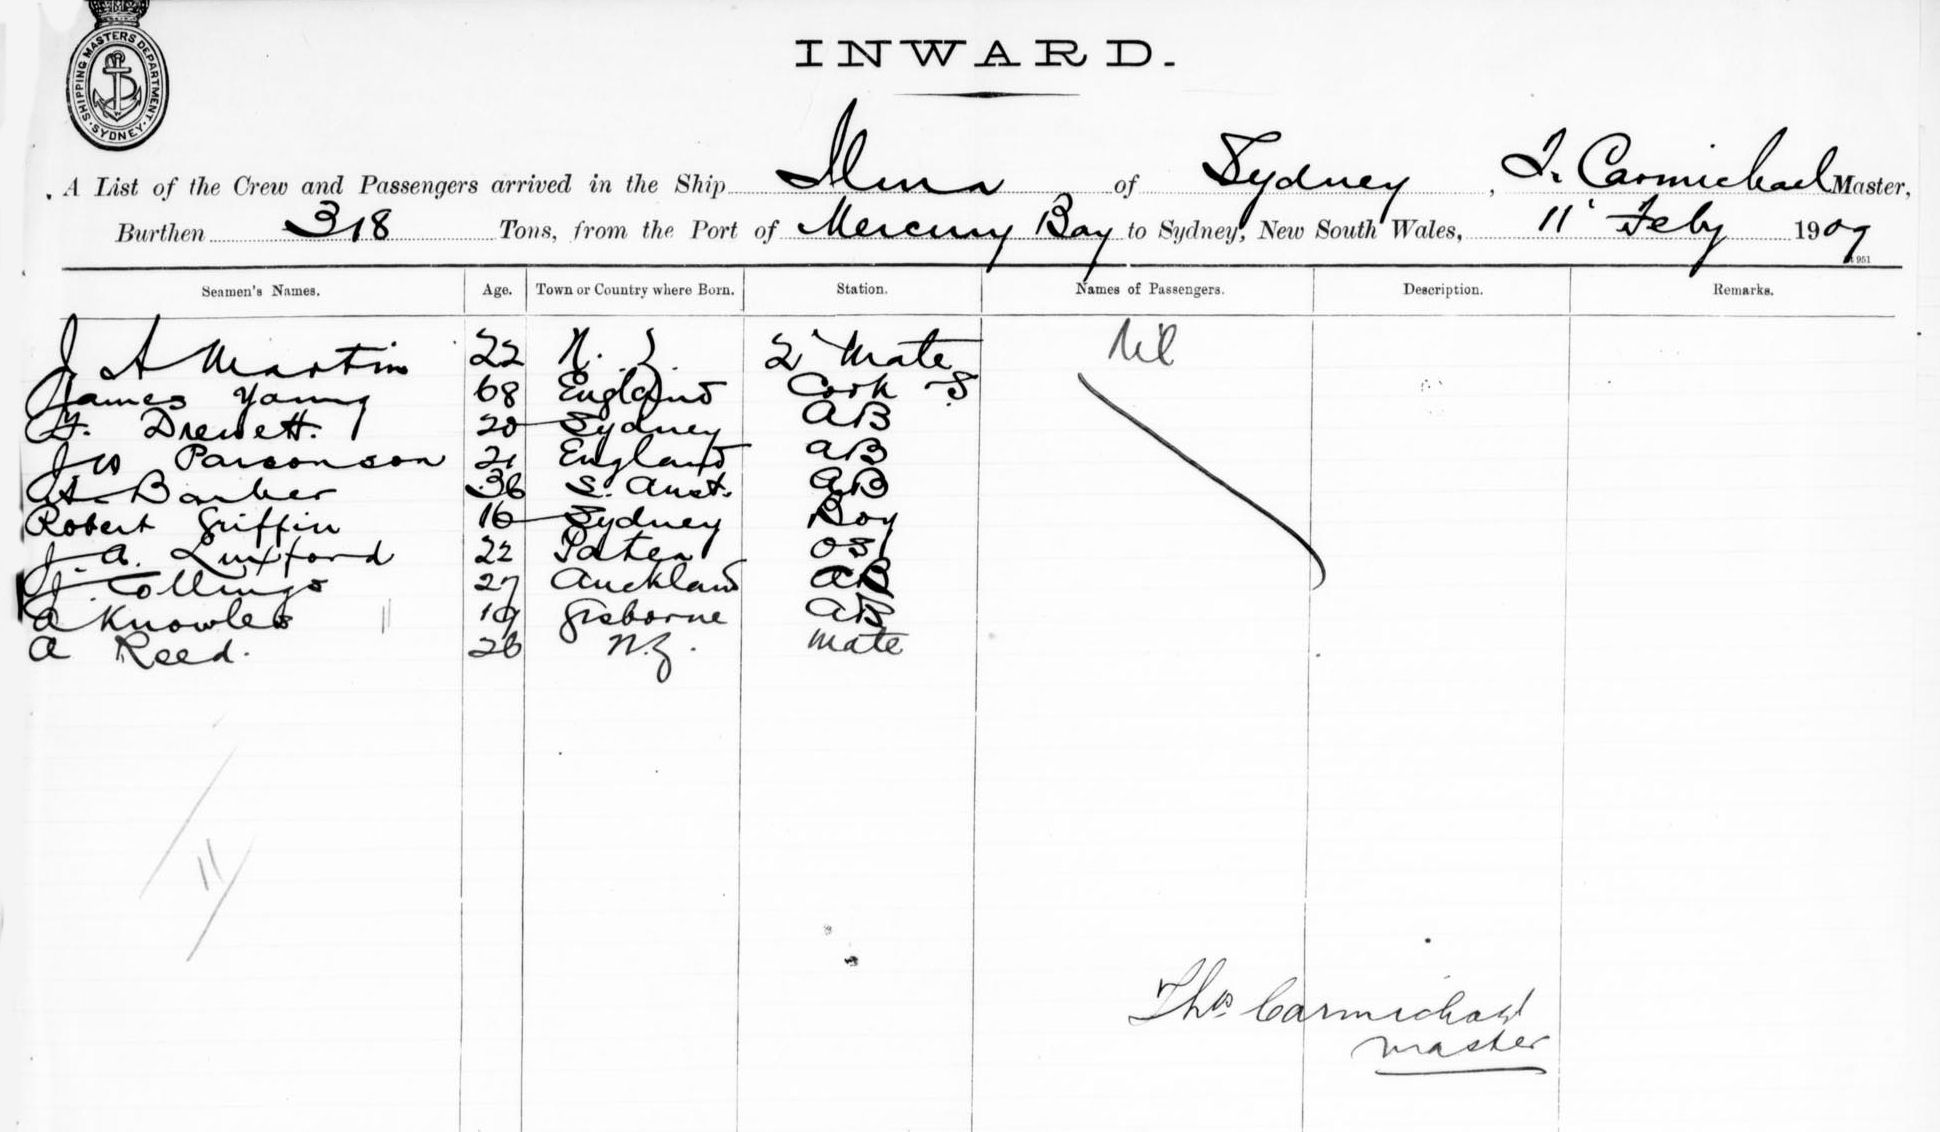 SHIPPING MASTERS DEPARTMENT
SYDNEY
INWARD.
A List of the Crew and Passengers arrived in the Ship of Sydney, T. Carmichael Master,
Burthen 318 Tons, from the Port of Mercury Bay to Sydney, New South Wales, 11' Feby 1907
951
Seamen's Names. Age. Town or Country where Born. Station. Names of Passengers. Description. Remarks.
J A Martin 22 N. Z. 2' Mate Nil
James Young 68 England Cook & S
F. Drewett. 20 Sydney AB
J W Parsonson 21 England AB
A. Barber 36 S. Aust. AB
Robert Griffin 16 Sydney Boy
J. A. Luxford 22 Patea OS
J. Collings 27 Auckland AB
A Knowles 19 Gisborne AB
A Reed. 26 N.Z. Mate
11
Thos Carmichael
Master